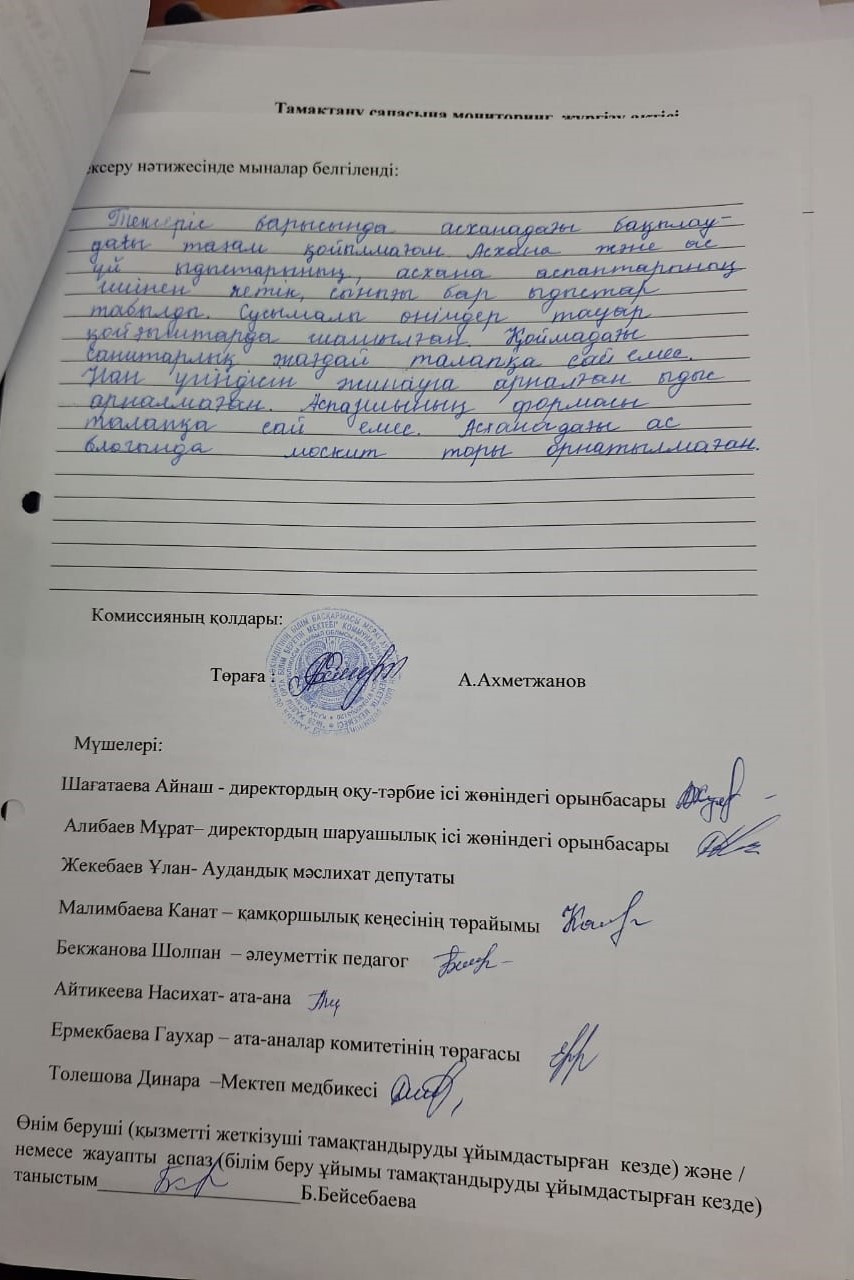 Тамақтану сапасына мониторинг жүргізу актісі
ексеру нәтижесінде мыналар белгіленді:
Тексеріс барысында асханадағы бақылау-
дағы тағам қойылмаған. Асхана және ас
үй ыдыстарының, асхана аспаптарының
ішінен кетік, сынығы бар ыдыстар
табылды. Сусымалы өнімдер тауар
қойғыштарда шашылған. Қоймадағы
санитарлық жағдай талапқа сай емес.
Нан үгіндісін жинауға арналған ыдыс
арналмаған. Аспазшының формасы
талапқа сай емес. Асханадағы ас
блогында москит торы орнатылмаған.
Комиссияның қолдары:
Төраға : А.Ахметжанов
Мүшелері:
Шағатаева Айнаш - директордың оқу-тәрбие ісі жөніндегі орынбасары
Алибаев Мұрат– директордың шаруашылық ісі жөніндегі орынбасары
Жекебаев Ұлан- Аудандық мәслихат депутаты
Малимбаева Канат – қамқоршылық кеңесінің төрайымы
Бекжанова Шолпан – әлеуметтік педагог
Айтикеева Насихат- ата-ана
Ермекбаева Гаухар – ата-аналар комитетінің төрағасы
Толешова Динара –Мектеп медбикесі
Өнім беруші (қызметті жеткізуші тамақтандыруды ұйымдастырған кезде) және /
немесе жауапты аспаз (білім беру ұйымы тамақтандыруды ұйымдастырған кезде)
таныстым____________________Б.Бейсебаева